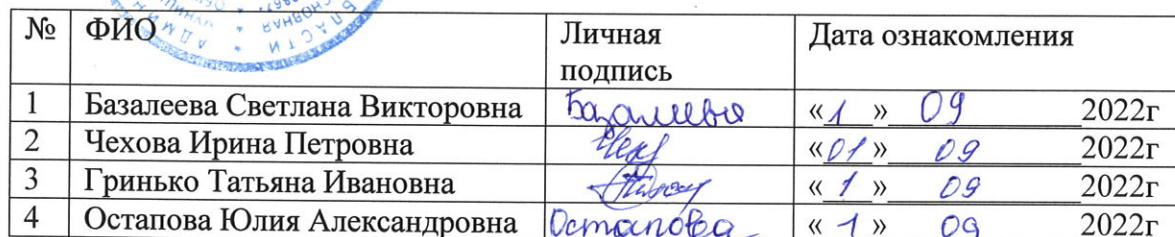 БЛАСТИ * АДМИН
СНОВНАЯ * МУНИЦ
№ ФИО Личная подпись Дата ознакомления
1 Базалеева Светлана Викторовна Базалеева «1» 09 2022г
2 Чехова Ирина Петровна Чех «01» 09 2022г
3 Гринько Татьяна Ивановна «1» 09 2022г
4 Остапова Юлия Александровна Остапова «1» 09 2022г